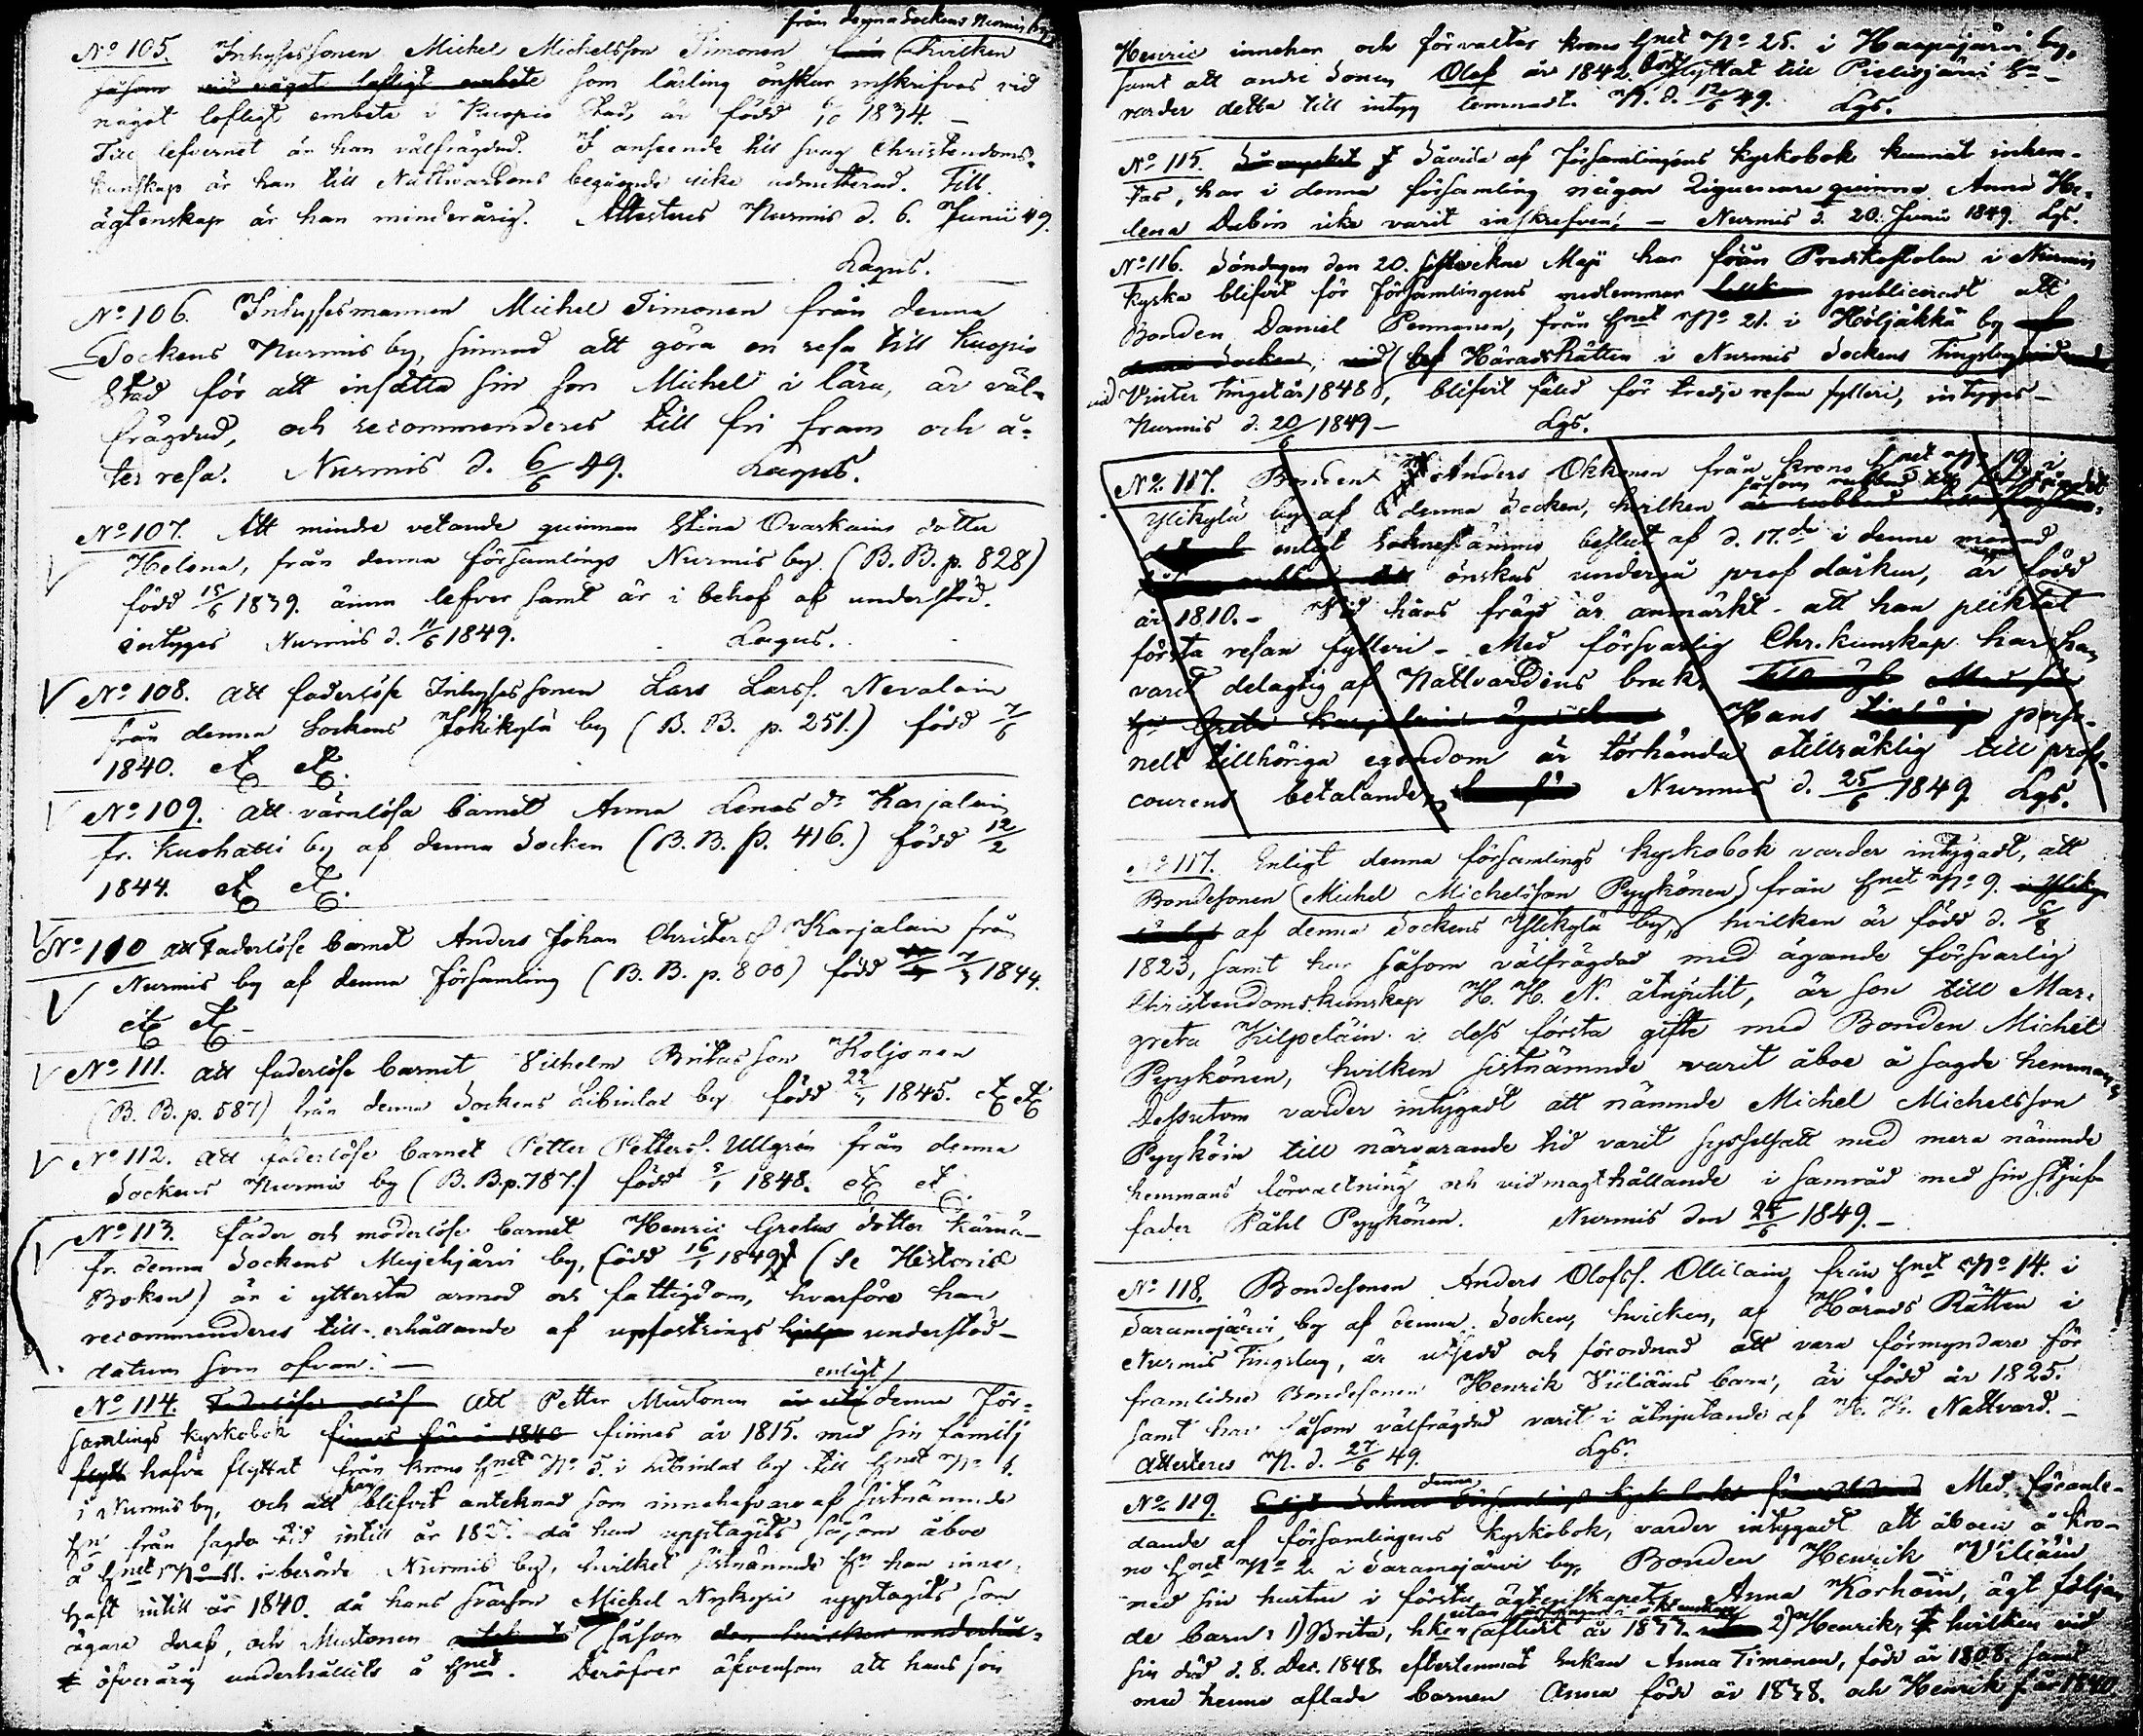 från denna Sockens Nurmis by
No 105. Inhysessonen Michel Michelsson Timonen från hvilken
såsom vid något lofligt embete som lärling önskar inskrifvas vid
något lofligt embete i Kuopio Stad, är född 1834. –
Till lefvernet är han välfrägdad. I anseende till svag Christendoms-
kunskap är han till Nattvardens begående icke admitterad. Till
ägtenskap är han minderårig. Attesteras Nurmis d. 6. Junii 49.
Lagus.
No 106. Inhysesmannen Michel Timonen från denna
Sockens Nurmis by, sinnad att göra en resa till Kuopio
Stad för att insätta sin son Michel i lära, är väl-
frägdad, och recommenderes till fri fram och å-
ter resa. Nurmis d. 6/6 49. Lagus.
No 107. Att mindre vetande quinnan Stina Ovaskains dotter
Helena, från denna församlings Nurmis by (B. B. p. 828)
född 15/6 1839. ännu lefver samt är i behof af understöd.
intyges Nurmis d. 11/6 1849. Lagus.
No 108. att faderlöse Inhysessonen Lars Larss. Nevalain
från denna Sockens Jokikylä by (B. B. p. 251.) född 7/6
1840. etc etc.
No 109. att värnlösa barnet Anna Lenas dr Karjalain
fr. Kuohatti by af denna Socken (B. B. p. 416.) född 12/2
1844. etc etc.
No 110 att Faderlöse barnet Anders Johan Christers Karjalain från
Nurmis by af denna församling (B. B. p. 800) född 1844.
etc etc –
No 111. att faderlöse barnet Vilhelm Britas son Koljonen
(B. B. p. 587) från denna Sockens Libinlat by född 22/ 1845. etc etc
No 112. att faderlöse barnet Petter Petters. Ullgrén från denna
Sockens Nurmis by (B. B. p. 787.) född 5/1 1848. etc etc.
No 113. fader och moderlöse barnet Henric Gretas dotter Kärnä –
fr. denna Sockens Mujejärvi by, född 16/1 1849 (se Historie
Boken) är i yttersta armod och fattigdom, hvarföre han
recommenderes till erhållande af uppfostrings hjelp understöd –
datum som ofvan. –
enligt
No 114. Att Petter Mustonen denna för-
samlings kyrkobok finnes från 1840 finnes år 1815. med sin familj
flytt hafva flyttat från krono Hnet No 5. i Libinlat by till Hnet No
i Nurmis by, och att han blifvit anteknad som innehafvare af sistnämnde
Hn från sagda tid intill år då han upptagits såsom åboe
å Hnet No 11. i berörde Nurmis by, hvilket sistnämnde Hn han inne-
haft intill år 1840. då hans Michel upptagits som
ägare deraf, och Mustonen såsom
öfverårig underhållits å Hnet. Deröfver äfvensom att hans son
Henric innehar och förvaltar krono Hnet No 25. i Haapajärvi by,
samt att andre Sonen Olof år 1842 flyttat till Pielisjärvi Sn –
varder detta till intyg lemnadt. N. d. 12/6 49. Lgs.
No 115. Så mycket Såvida af församlingens kyrkobok kunnat inhem-
tas, har i denna församling någon Ziguenare quinna Anna He-
lena Dubin icke varit inskrefven. – Nurmis d. 20. Junii 1849. Lgs.
No 116. Söndagen den 20. Maji har från Predikstolen i Nurmis
kyrka blifvit för församlingens medlemmar publiceradt att
Bonden Daniel Pennanen, från Hnet No 21. i Höljäkkä by af
denna Socken, vid (af HäradsRätten i Nurmis Sockens Tingslag
vid Vinter Tinget år 1848, blifvit fäld för tredje resan fylleri, intyges –
Nurmis d. 20/6 1849 – Lgs.
No 117. Bonden Anders Okkonen från krono Hnet No 19 i
såsom rubbad till förståndet
Ylikylä by af denna Socken, hvilken
enligt Sockne stämmo beslut af d. 17.de i denne månad
önskas undergå prof dårhus, är född
år 1810. – Vid hans frägd är anmärkt att han pliktat
första resan fylleri – Med försvarlig Chr. kunskap har han
varit delagtig af Nattvardens bruk.
Hans perso-
nelt tillhöriga egendom är törhända otillräklig till prof-
courens betalande, Nurmis d. 25/6 1849. Lgs.
No 117. Enligt denna församlings kyrkobok varder intygadt, att
Bondesonen (Michel Michelsson Pyykönen) från Hnet No 9.
af denna Sockens Ylikylä by, hvilken är född d. 6/8
1823, samt har såsom välfrägdad med ägande försvarlig
Christendomskunskap H. H. N. åtnjutit, är son till Mar-
greta Kilpeläin i dess första gifte med Bonden Michel
Pyykönen, hvilken sistnämnde varit åboe å sagde hemman,
Dessutom varder intygadt att nämnde Michel Michelsson
Pyyköin till närvarande tid varit sysselsatt med mera nämnde
hemmans förvaltning och vidmagthållande i samråd med sin stjuf-
fader Påhl Pyykönen. Nurmis den 25/6 1849. –
No 118. Bondesonen Anders Olofss. Ollilain från Hnet No 14. i
Saramojärvi by af denna Socken, hvilken, af Härads Rätten i
Nurmis Tingslag, är utsedd och förordnad att vara förmyndare för
framlidne Bondesonen Henrik Viiliäins barn, är född år 1825.
samt har såsom välfrägdad varit i åtnjutande af H. H. Nattvard. –
Attesteres N. d. 27/6 49. Lgs.
No 119. Med föranle-
dande af församlingens kyrkobok, varder intygadt att åboen å kro-
no Hnet No 2. i Saramojärvi by, Bonden Henrik Viliäin
med sin hustru i första ägtenskapet, Anna Korhoin, ägt följan-
de barn: 1) Brita, hken aflidit år 1837. 2) Henrik, hvilken vid
sin död d. 8. Dec. 1848. efterlemnat Enkan Anna Timonen, född år 1808. samt
med henne aflade barnen Anna född år 1838. och Henrik f. år 1840